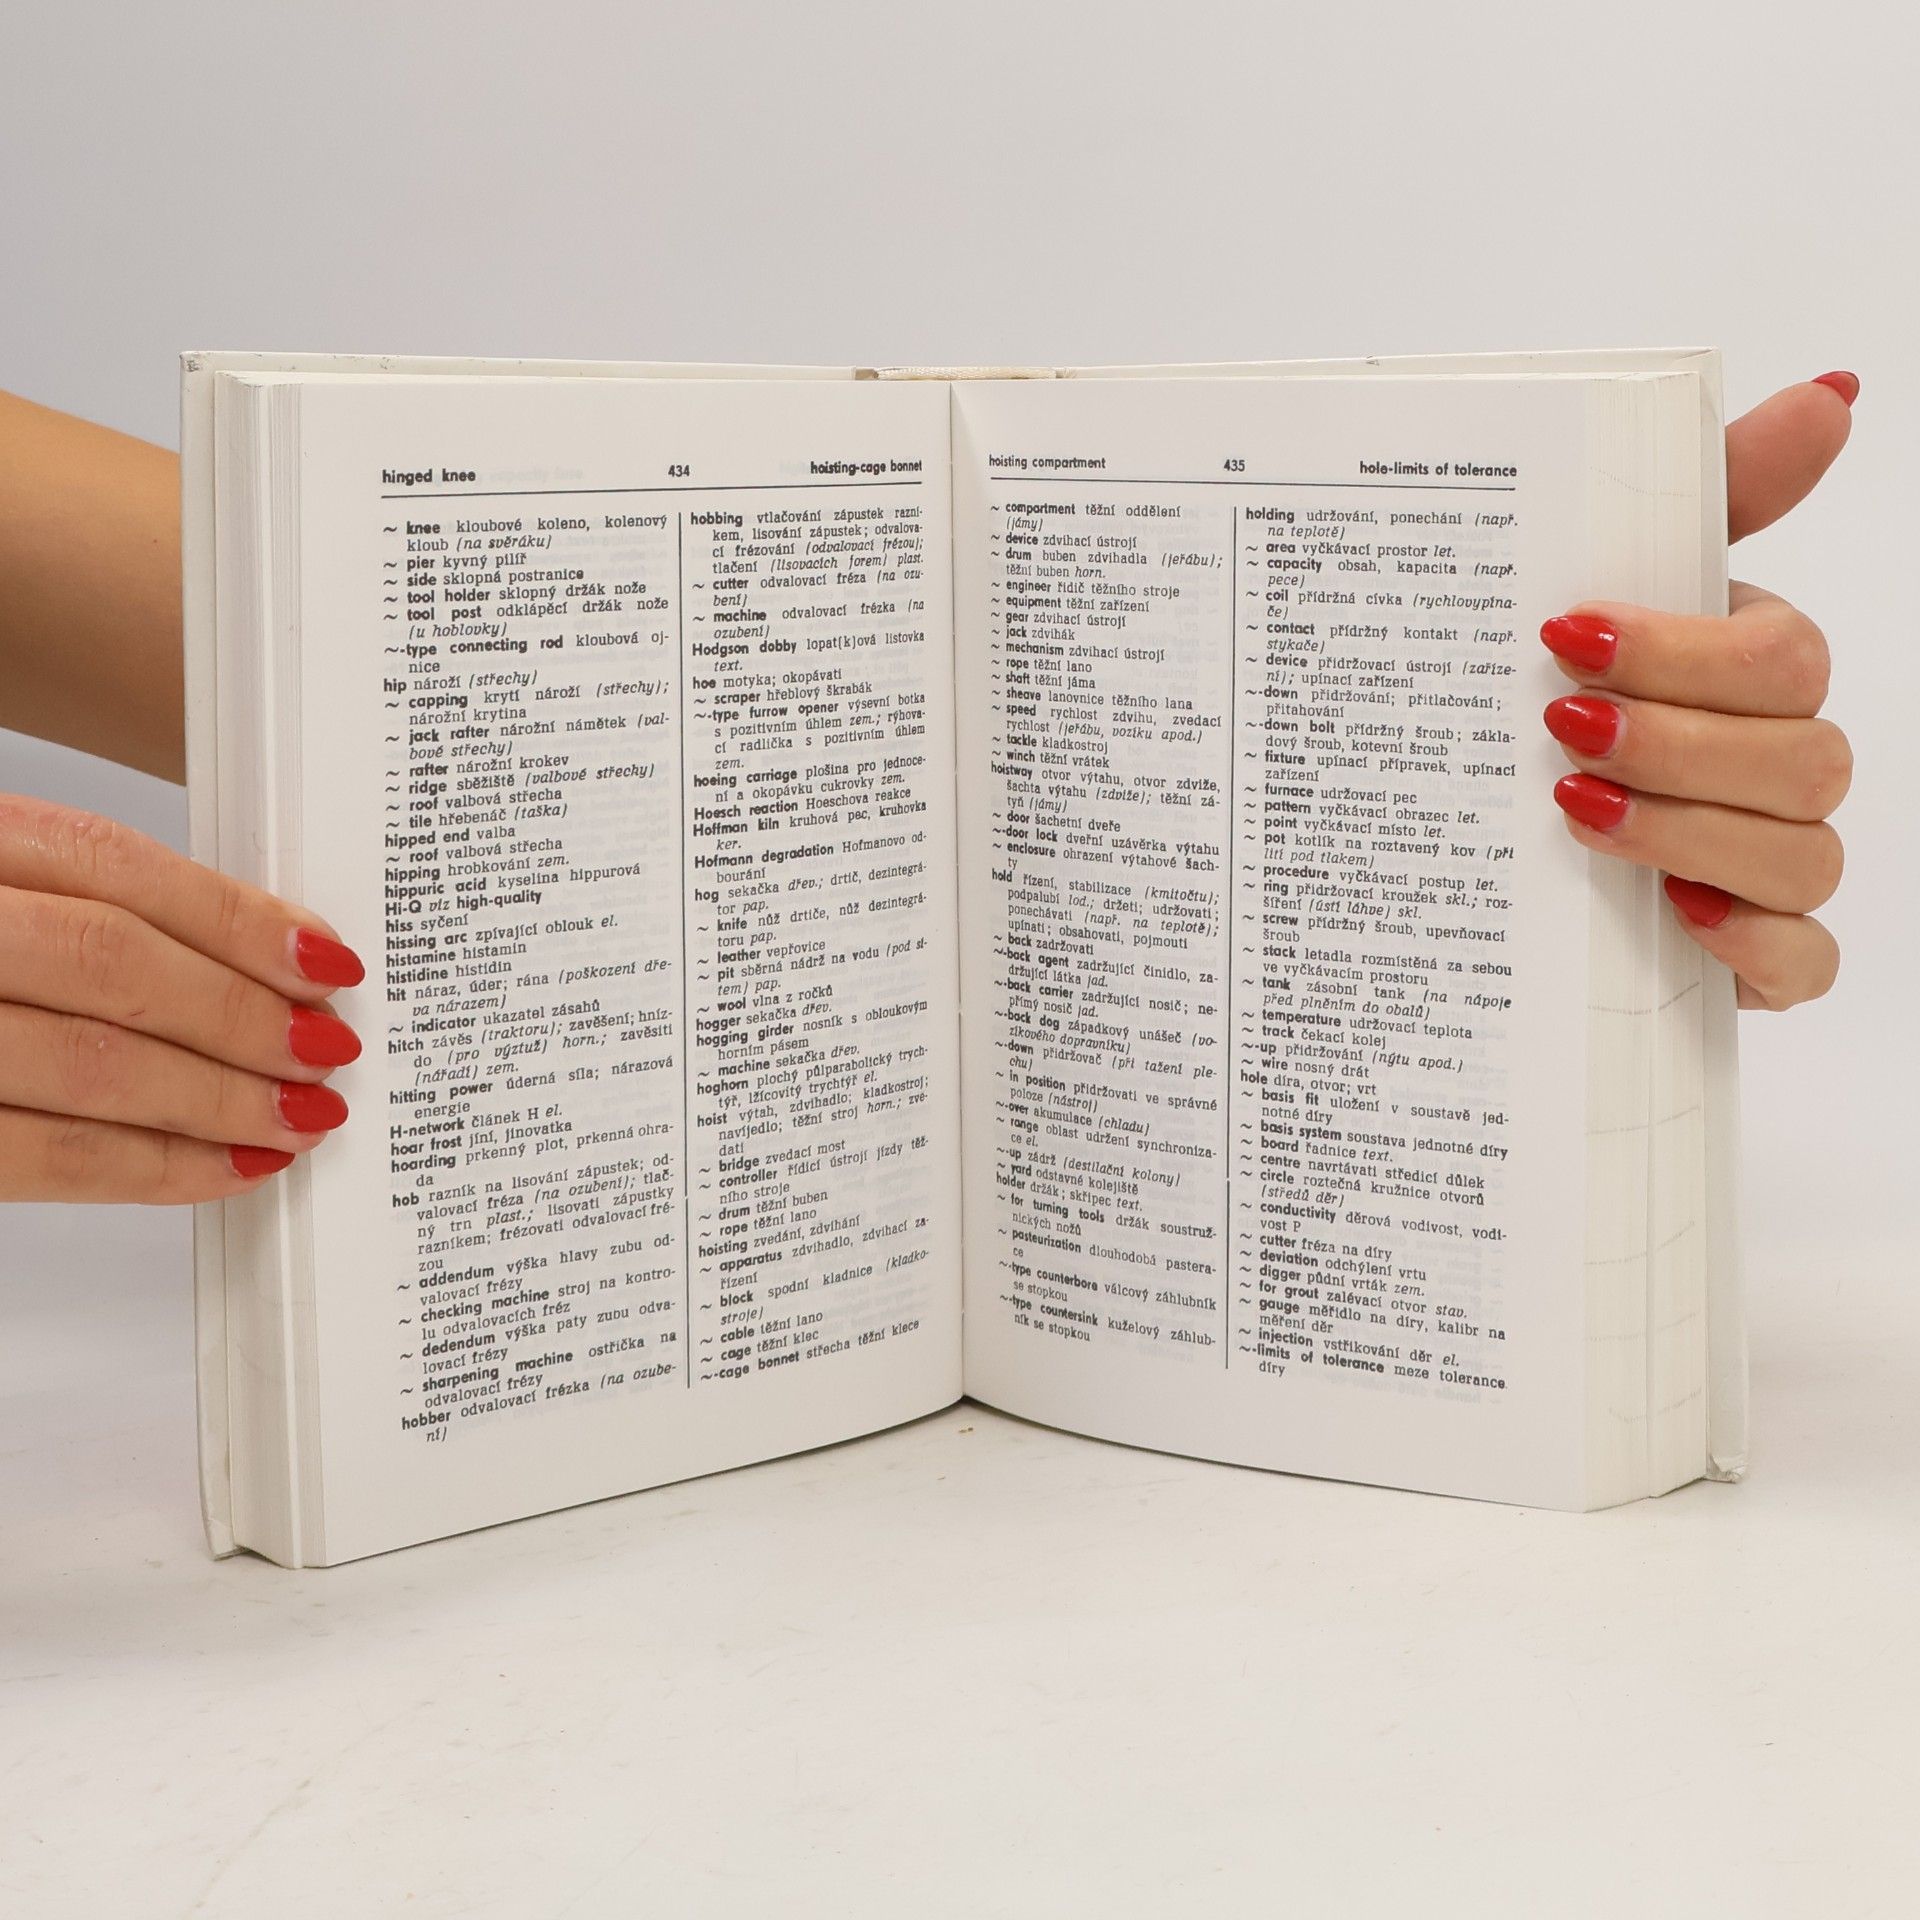 hinged knee 434 hoisting-cage bonnet
~ knee kloubové koleno, kolenový
kloub (na svěráku)
~ pier kyvný pilíř
~ side sklopná postranice
~ tool holder sklopný držák nože
~ tool post odklápěcí držák nože
(u hoblovky)
~-type connecting rod kloubová oj-
nice
hip nároží (střechy)
~ capping krytí nároží (střechy);
nárožní krytina
~ jack rafter nárožní námětek (val-
bové střechy)
~ rafter nárožní krokev
~ ridge sběžiště (valbové střechy)
~ roof valbová střecha
~ tile hřebenáč (taška)
hipped end valba
~ roof valbová střecha
hipping hrobkování zem.
hippuric acid kyselina hippurová
Hi-Q viz high-quality
hiss syčení
hissing arc zpívající oblouk el.
histamine histamin
histidine histidin
hit náraz, úder; rána (poškození dře-
va nárazem)
~ indicator ukazatel zásahů
hitch závěs (traktoru); zavěšení; hníz-
do (pro výztuž) horn.; zavěsiti
(nářadí) zem.
hitting power úderná síla; nárazová
energie
H-network článek H el.
hoar frost jíní, jinovatka
hoarding prkenný plot, prkenná ohra-
da
hob razník na lisování zápustek; od-
valovací fréza (na ozubení); tlač-
ný trn plast.; lisovati zápustky
razníkem; frézovati odvalovací fré-
zou
~ addendum výška hlavy zubu od-
valovací frézy
~ checking machine stroj na kontro-
lu odvalovacích fréz
~ dedendum výška paty zubu odva-
lovací frézy
~ sharpening machine ostřička na
odvalovací frézy
hobber odvalovací frézka (na ozube-
ní)
hobbing vtlačování zápustek razní-
kem, lisování zápustek; odvalova-
cí frézování (odvalovací frézou);
tlačení (lisovacích forem) plast.
~ cutter odvalovací fréza (na ozu-
bení)
~ machine odvalovací frézka (na
ozubení)
Hodgson dobby lopat[k]ová listovka
text.
hoe motyka; okopávati
~ scraper hřeblový škrabák
~-type furrow opener výsevní botka
s pozitivním úhlem zem.; rýhova-
cí radlička s pozitivním úhlem
zem.
hoeing carriage plošina pro jednoce-
ní a okopávku cukrovky zem.
Hoesch reaction Hoeschova reakce
Hoffman kiln kruhová pec, kruhovka
ker.
Hofmann degradation Hofmanovo od-
bourání
hog sekačka dřev.; drtič, dezintegrá-
tor pap.
~ knife nůž drtiče, nůž dezintegrá-
toru pap.
~ leather vepřovice
~ pit sběrná nádrž na vodu (pod sí-
tem) pap.
~ wool vlna z ročků
hogger sekačka dřev.
hogging girder nosník s obloukovým
horním pásem
~ machine sekačka dřev.
hoghorn plochý půlparabolický trych-
týř, lžícovitý trychtýř el.
hoist výtah, zdvihadlo; kladkostroj;
navíjedlo; těžní stroj horn.; zve-
dati
~ bridge zvedací most
~ controller řídicí ústrojí jízdy těž-
ního stroje
~ drum těžní buben
~ rope těžní lano
hoisting zvedání, zdvíhání
~ apparatus zdvihadlo, zdvihací za-
řízení
~ block spodní kladnice (kladko-
stroje)
~ cable těžní lano
~ cage těžní klec
~-cage bonnet střecha těžní klece
hoisting compartment 435 hole-limits of tolerance
~ compartment těžní oddělení
(jámy)
~ device zdvihací ústrojí
~ drum buben zdvihadla (jeřábu);
těžní buben horn.
~ engineer řidič těžního stroje
~ equipment těžní zařízení
~ gear zdvihací ústrojí
~ jack zdvihák
~ mechanism zdvihací ústrojí
~ rope těžní lano
~ shaft těžní jáma
~ sheave lanovnice těžního lana
~ speed rychlost zdvihu, zvedací
rychlost (jeřábu, vozíku apod.)
~ tackle kladkostroj
~ winch těžní vrátek
hoistway otvor výtahu, otvor zdviže,
šachta výtahu (zdviže); těžní zá-
tyň (jámy)
~ door šachetní dveře
~-door lock dveřní uzávěrka výtahu
~ enclosure ohrazení výtahové šach-
ty
hold řízení, stabilizace (kmitočtu);
podpalubí lod.; držeti; udržovati;
ponechávati (např. na teplotě);
upínati; obsahovati, pojmouti
~ back zadržovati
~-back agent zadržující činidlo, za-
držující látka jad.
~-back carrier zadržující nosič; ne-
přímý nosič jad.
~-back dog západkový unášeč (vo-
zíkového dopravníku)
~-down přidržovač (při tažení ple-
chu)
~ in position přidržovati ve správné
poloze (nástroj)
~-over akumulace (chladu)
~ range oblast udržení synchroniza-
ce el.
~-up zádrž (destilační kolony)
~ yard odstavné kolejiště
holder držák; skřipec text.
~ for turning tools držák soustruž-
nických nožů
~ pasteurization dlouhodobá pastera-
ce
~-type counterbore válcový záhlubník
se stopkou
~-type countersink kuželový záhlub-
ník se stopkou
holding udržování, ponechání (např.
na teplotě)
~ area vyčkávací prostor let.
~ capacity obsah, kapacita (např.
pece)
~ coil přídržná cívka (rychlovypína-
če)
~ contact přídržný kontakt (např.
stykače)
~ device přidržovací ústrojí (zaříze-
ní); upínací zařízení
~-down přidržování; přitlačování;
přitahování
~-down bolt přídržný šroub; zákla-
dový šroub, kotevní šroub
~ fixture upínací přípravek, upínací
zařízení
~ furnace udržovací pec
~ pattern vyčkávací obrazec let.
~ point vyčkávací místo let.
~ pot kotlík na roztavený kov (při
lití pod tlakem)
~ procedure vyčkávací postup let.
~ ring přidržovací kroužek skl.; roz-
šíření (ústí láhve) skl.
~ screw přídržný šroub, upevňovací
šroub
~ stack letadla rozmístěná za sebou
ve vyčkávacím prostoru
~ tank zásobní tank (na nápoje
před plněním do obalů)
~ temperature udržovací teplota
~ track čekací kolej
~-up přidržování (nýtu apod.)
~ wire nosný drát
hole díra, otvor; vrt
~ basis fit uložení v soustavě jed-
notné díry
~ basis system soustava jednotné díry
~ board řadnice text.
~ centre navrtávati středicí důlek
~ circle roztečná kružnice otvorů
(středů děr)
~ conductivity děrová vodivost, vodi-
vost P
~ cutter fréza na díry
~ deviation odchýlení vrtu
~ digger půdní vrták zem.
~ for grout zalévací otvor stav.
~ gauge měřidlo na díry, kalibr na
měření děr
~ injection vstřikování děr el.
~-limits of tolerance meze tolerance
díry